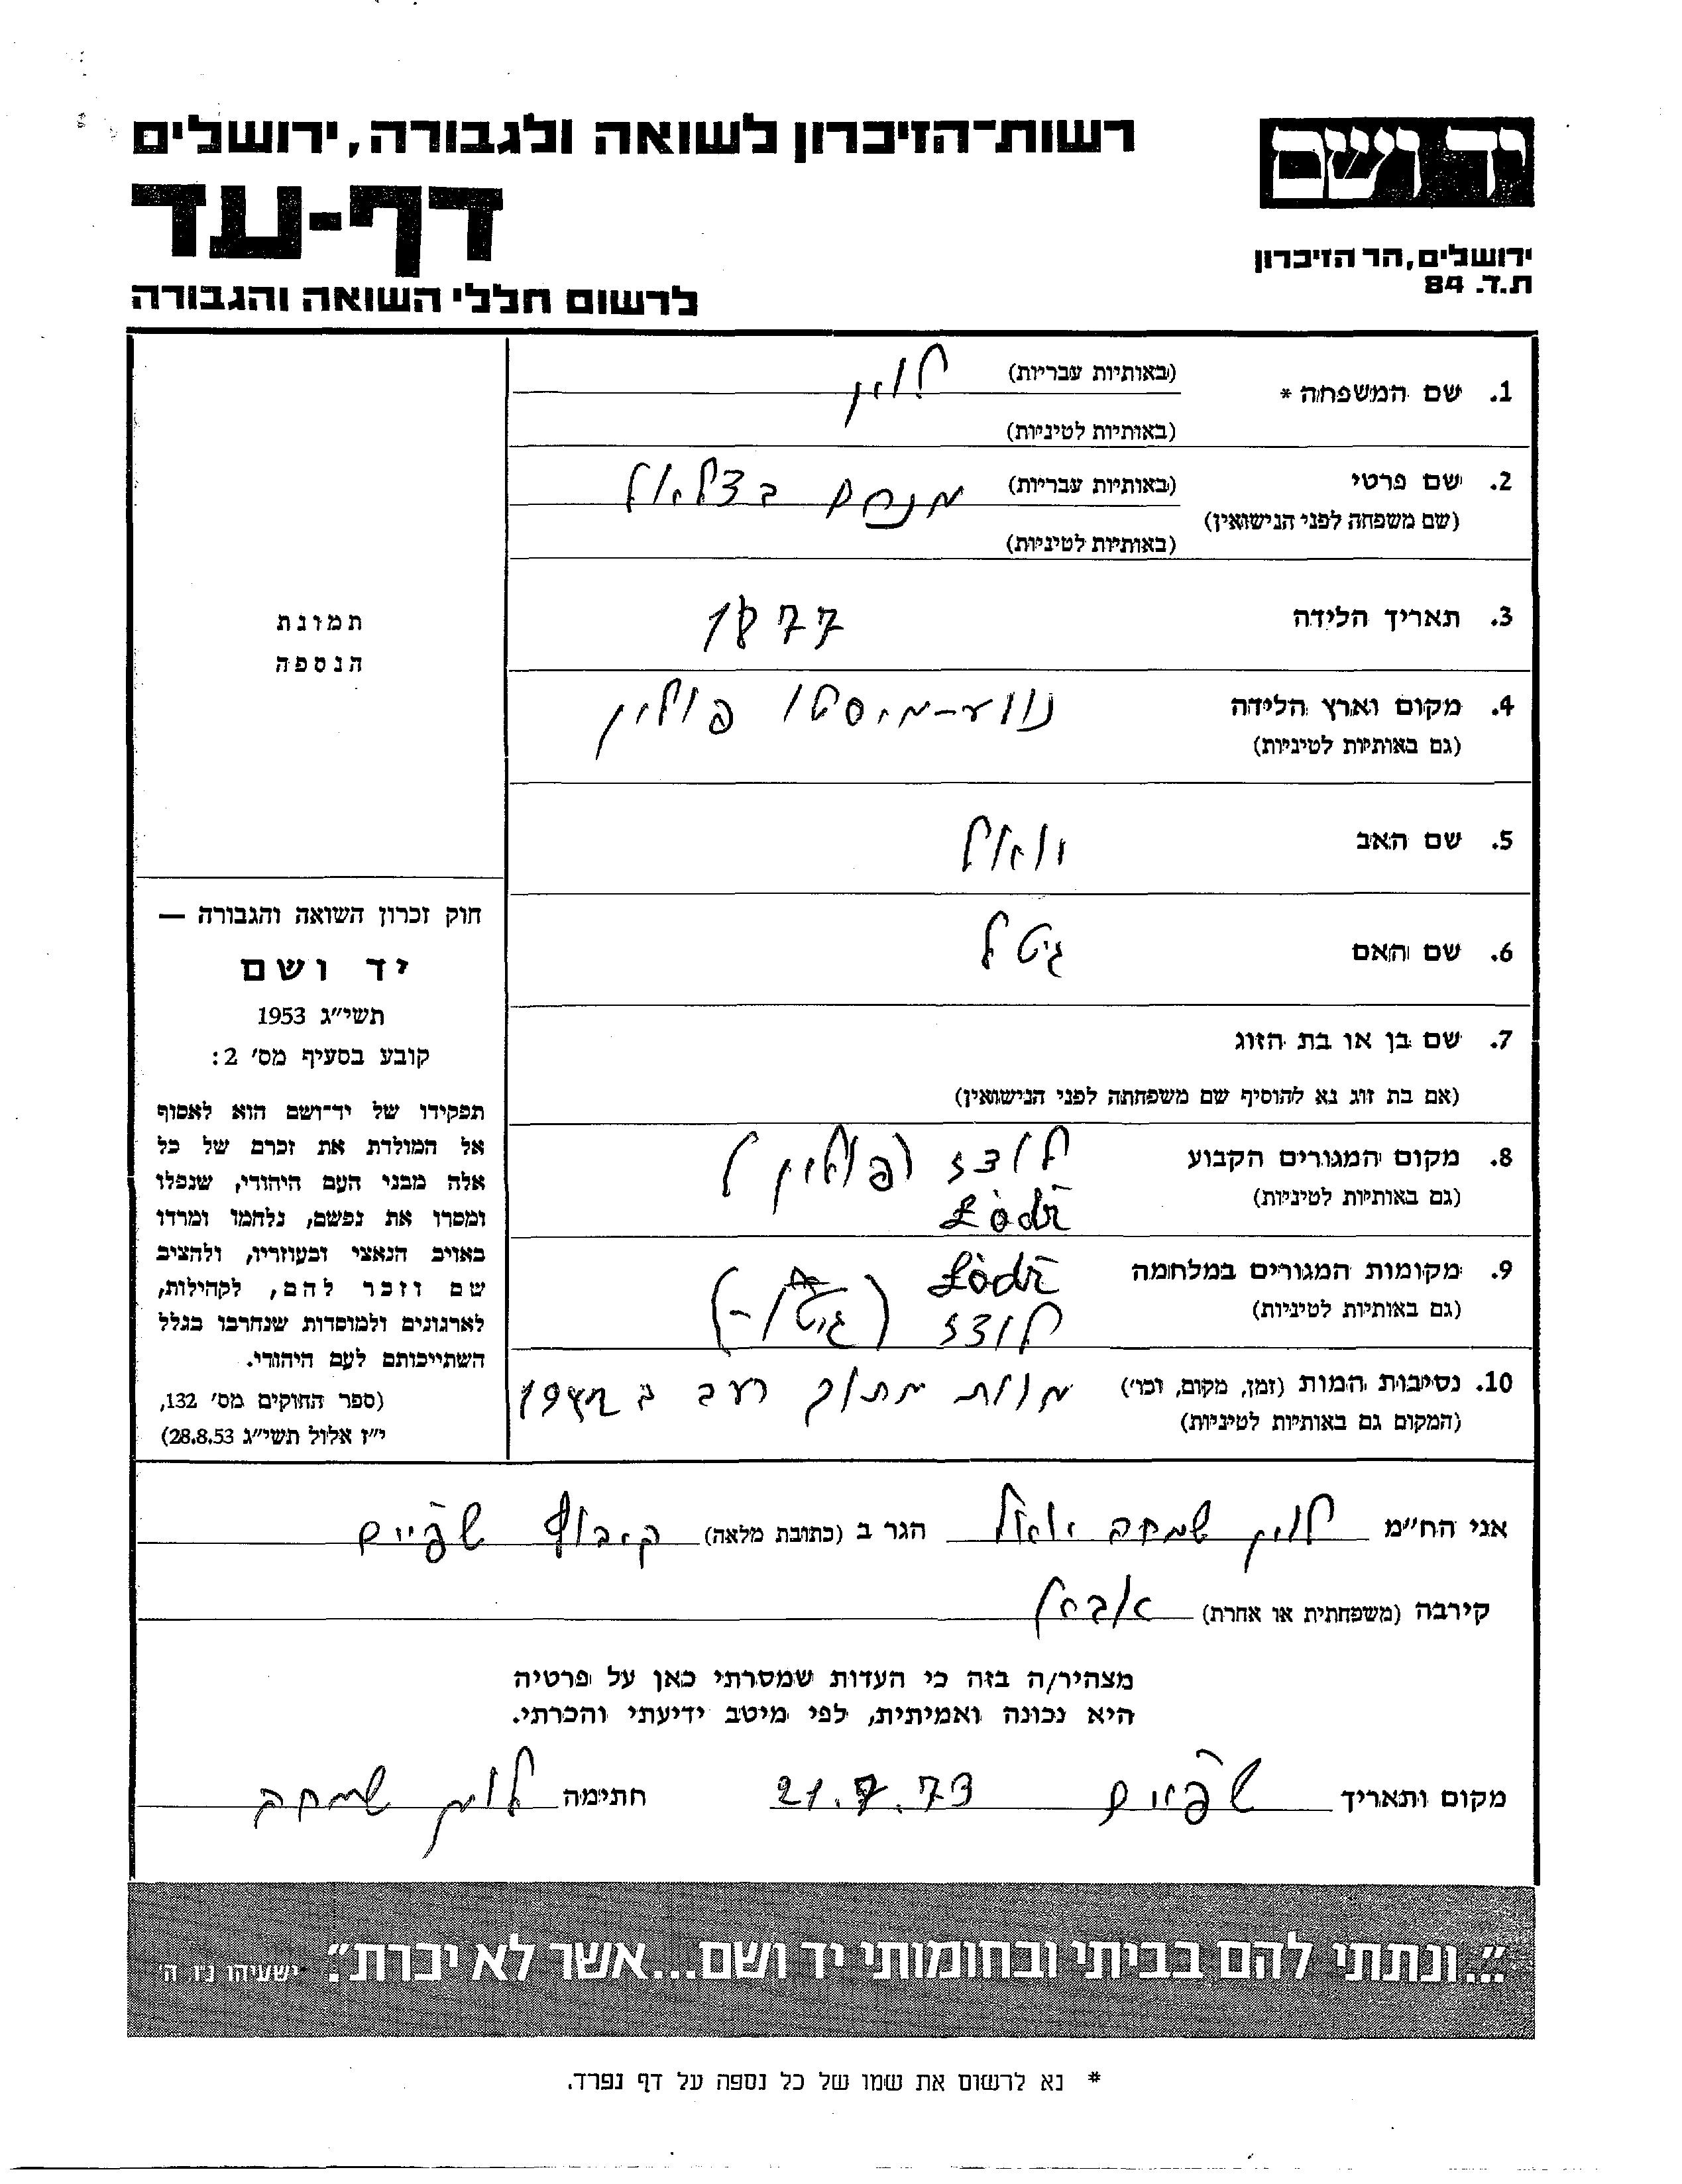 רשות־הזיכרון לשואה ולגבורה, ירושלים
יד ושם
דף-עד
ירושלים, הר הזיכרון
ת.ד. 84
לרשום חללי השואה והגבורה
1. שם המשפחה * (באותיות עבריות) לוין
(באותיות לטיניות)
2. שם פרטי (באותיות עבריות) מנחם בצלאל
(שם משפחה לפני הנישואין)
(באותיות לטיניות)
3. תאריך הלידה 1877
4. מקום וארץ הלידה נווע-מיסטו פולין
(גם באותיות לטיניות)
5. שם האב
6. שם האם גיטל
7. שם בן או בת הזוג
(אם בת זוג נא להוסיף שם משפחתה לפני הנישואין)
8. מקום המגורים הקבוע לודז (פולין)
(גם באותיות לטיניות) Łòdź
9. מקומות המגורים במלחמה Łòdź
(גם באותיות לטיניות) לודז (גיטו-)
10. נסיבות המות (זמן, מקום, וכו') מוות מתוך רעב ב 1942
(המקום גם באותיות לטיניות)
תמונת
הנספה
חוק זכרון השואה והגבורה —
יד ושם
תשי״ג 1953
קובע בסעיף מס' 2:
תפקידו של יד־ושם הוא לאסוף
אל המולדת את זכרם של כל
אלה מבני העם היהודי, שנפלו
ומסרו את נפשם, נלחמו ומרדו
באויב הנאצי ובעוזריו, ולהציב
שם וזכר להם, לקהילות,
לארגונים ולמוסדות שנחרבו בגלל
השתייכותם לעם היהודי.
(ספר החוקים מס' 132,
י״ז אלול תשי״ג 28.8.53)
אני הח״מ לוין שמחה יואל הגר ב (כתובת מלאה) קיבוץ שפיים
קירבה (משפחתית או אחרת)
מצהיר/ה בזה כי העדות שמסרתי כאן על פרטיה
היא נכונה ואמיתית, לפי מיטב ידיעתי והכרתי.
מקום ותאריך שפיים 21.7.73 חתימה לוין שמחה
"...ונתתי להם בביתי ובחומותי יד ושם...אשר לא יכרת". ישעיהו נ״ו, ה'
* נא לרשום את שמו של כל נספה על דף נפרד.